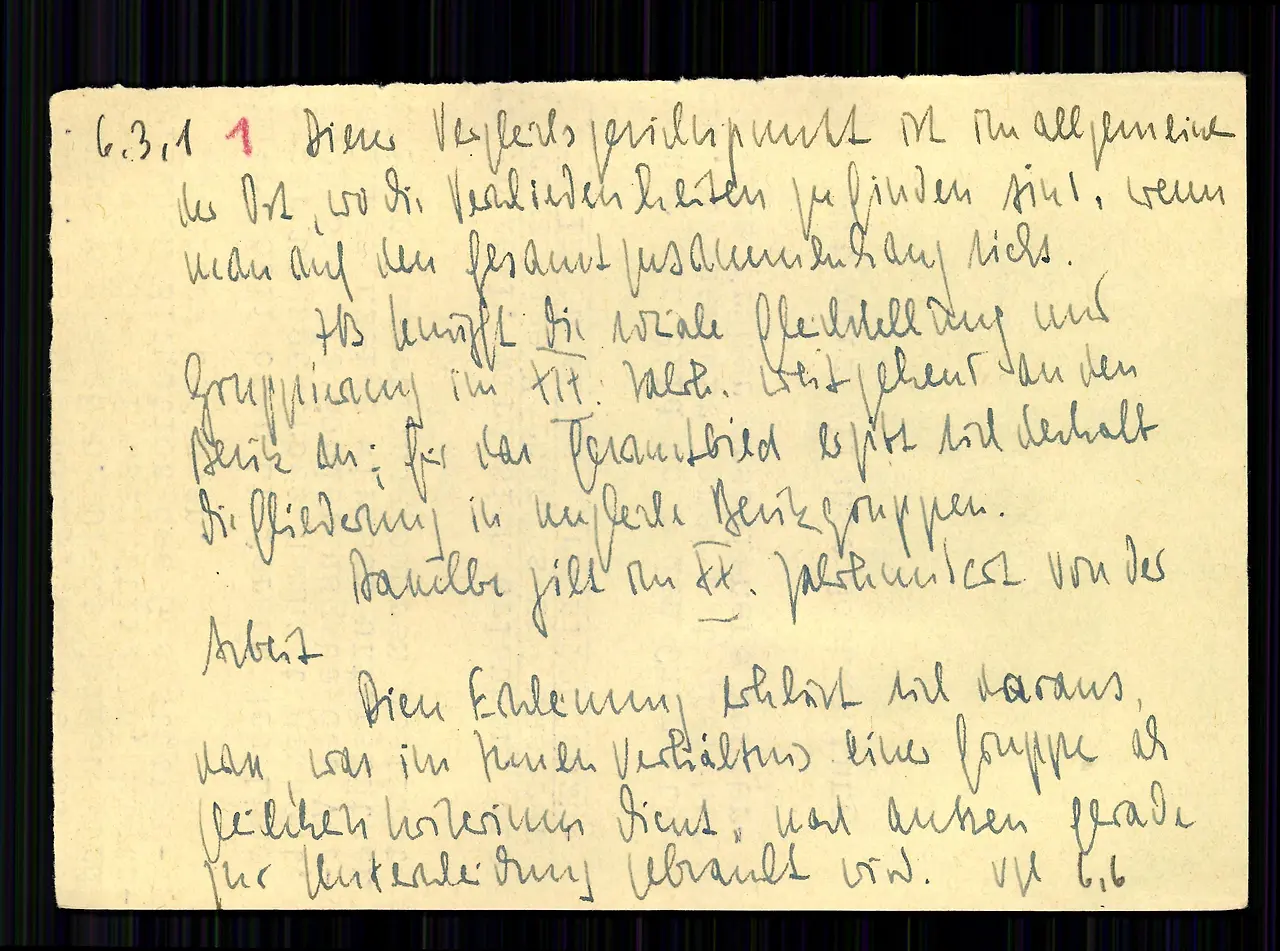 6.3,1 1 Dieser Vergleichsgesichtspunkt ist im allgemeinen
der Ort, wo die Verschiedenheiten zu finden sind, wenn
man auf den Gesamtzusammenhang sieht.
ZB knüpft die soziale Gleichstellung und
Gruppierung im XIX. Jahrh. weitgehend an den
Beruf an; für das Gesamtbild ergibt sich deshalb
die Gliederung in ungleiche Berufsgruppen.
Dasselbe gilt im XX. Jahrhundert von der
Arbeit
Diese Erscheinung erklärt sich daraus,
dass, was im Innenverhältnis einer Gruppe als
Gleichheitskriterium dient, nach aussen gerade
zur Unterscheidung gebraucht wird. Vgl 6,6